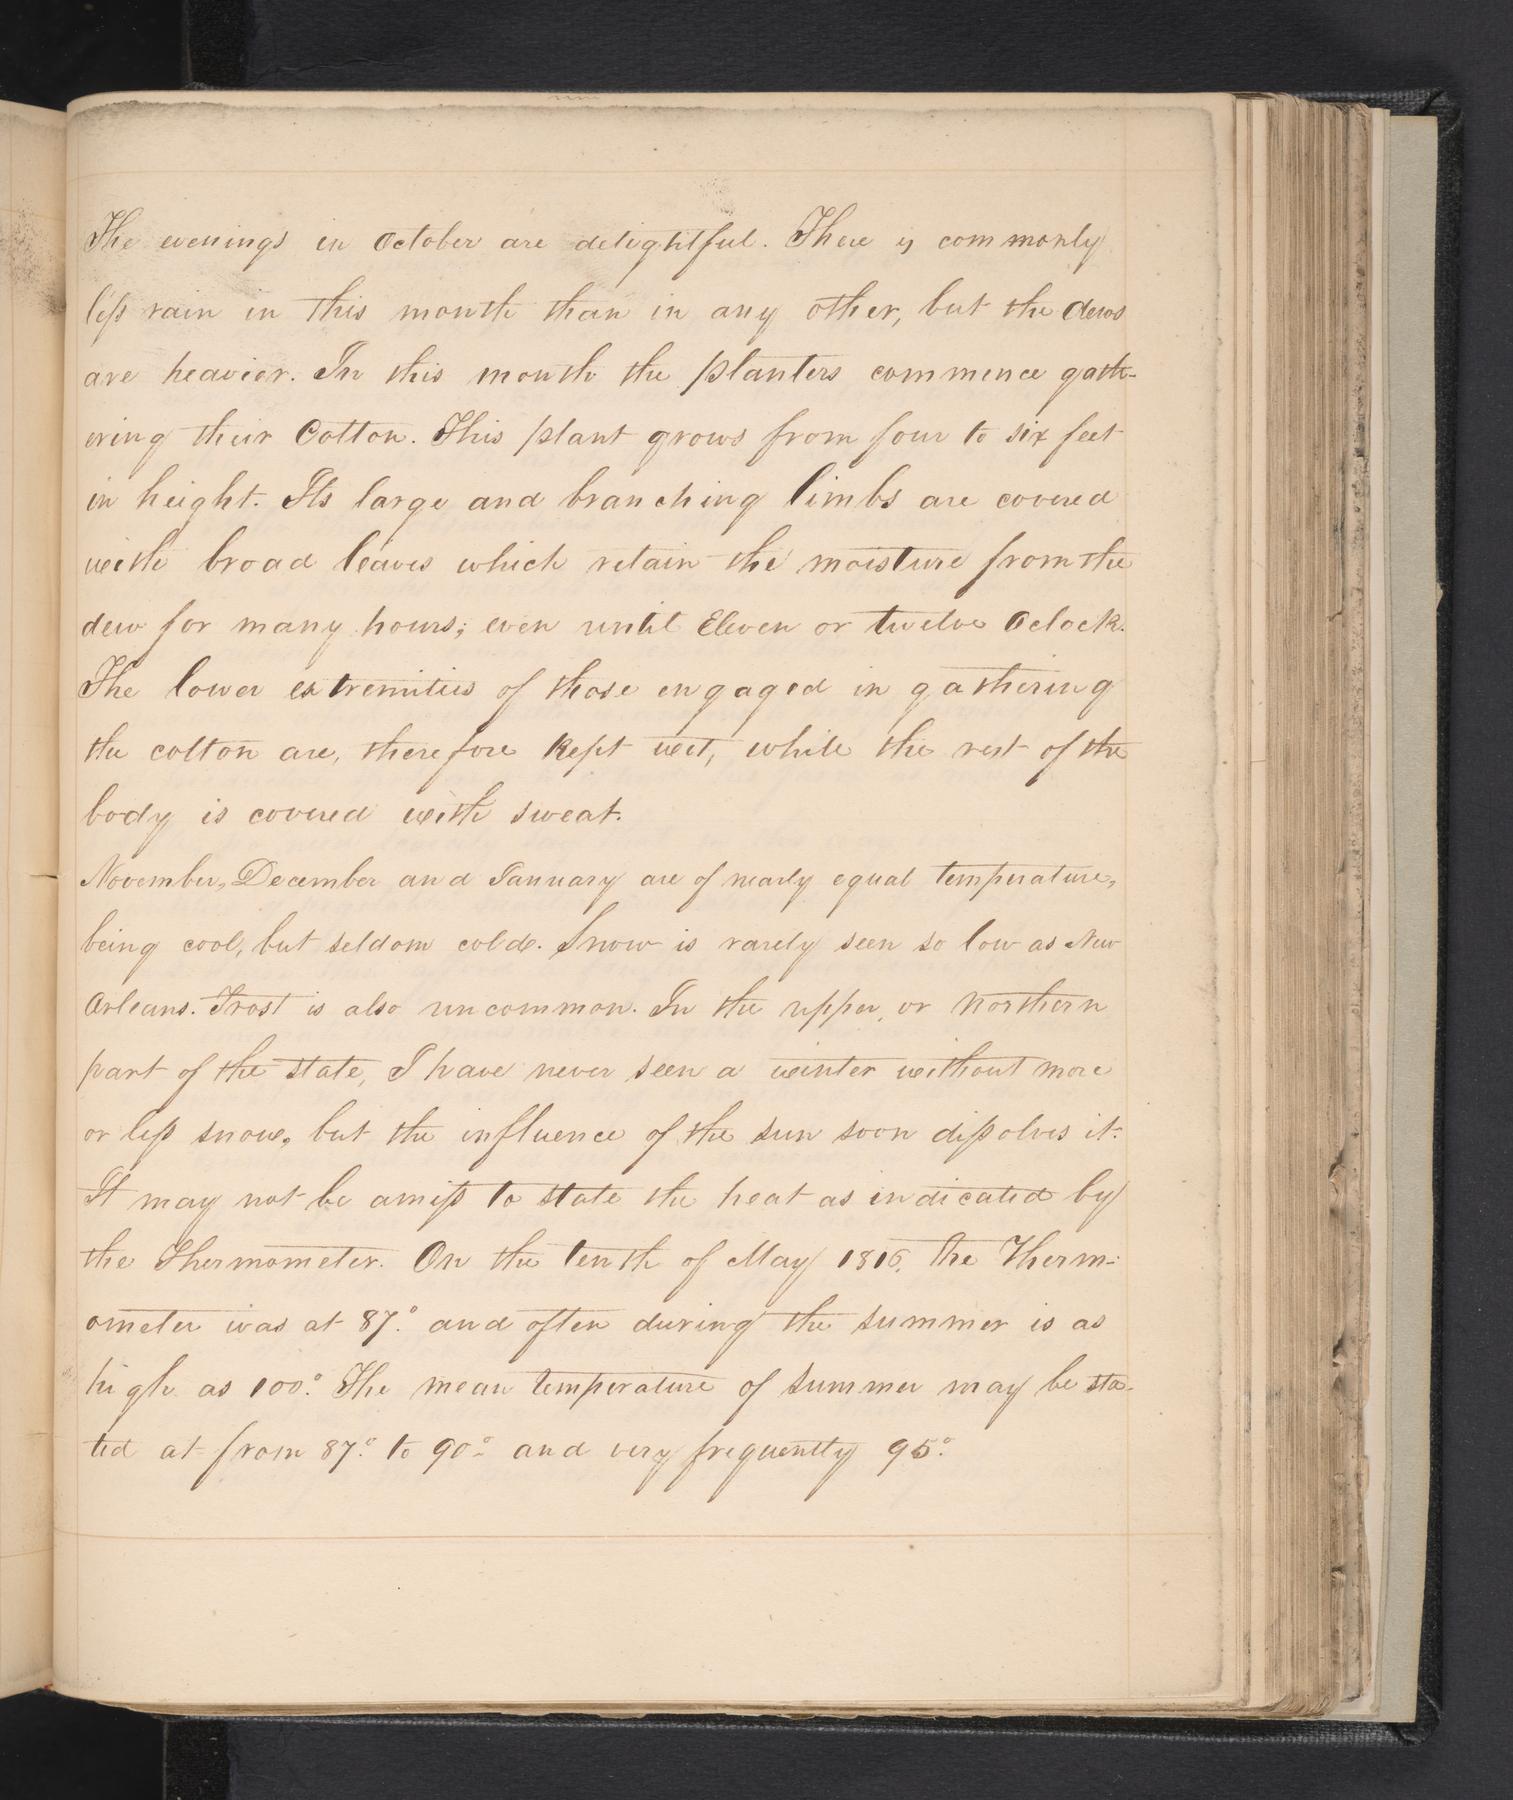 The evenings in October are delightful. There is commonly
less rain in this month than in any other, but the dews
are heavier. In this month the planters commence gath-
ering their Cotton. This plant grows from four to six feet
in height. Its large and branching limbs are covered
with broad leaves which retain the moisture from the
dew for many hours; even until Eleven or twelve Oclock.
The lower extremities of those engaged in gathering
the cotton are, therefore kept wet, while the rest of the
body is covered with sweat.
November, December and January are of nearly equal temperature,
being cool, but seldom cold. Snow is rarely seen so low as New
Orleans. Frost is also uncommon. In the upper, or northern
part of the state, I have never seen a winter without more
or less snow, but the influence of the sun soon dissolves it.
It may not be amiss to state the heat as indicated by
the Thermometer. On the tenth of May 1816. the Therm-
ometer was at 87.° and often during the summer is as
high as 100.° The mean temperature of summer may be sta-
ted at from 87.° to 90° and very frequently 95.°